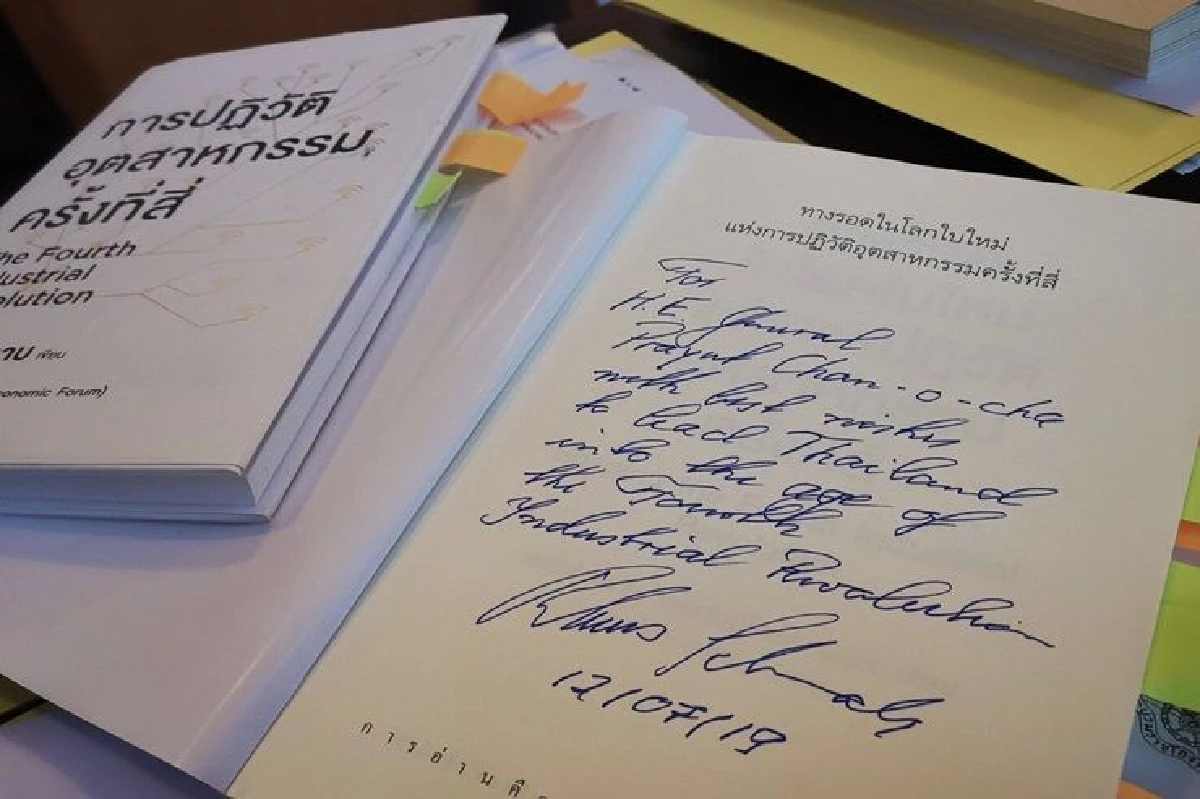 การปฏิวัติ
อุตสาหกรรม
ครั้งที่สี่
he Fourth
dustrial
olution
าบ เขียน
onomic Forum)
ทางรอดในโลกใบใหม่
แห่งการปฏิวัติอุตสาหกรรมครั้งที่สี่
For
H.E. General
Prayut Chan-o-cha
with best wishes
to lead Thailand
into the age of
the Fourth
Industrial Revolution
Klaus Schwab
12/07/19
การอ่านคื